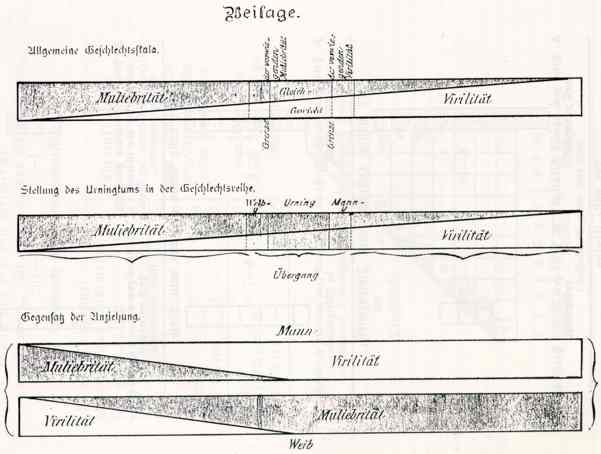 Beilage.
Allgemeine Geschlechtsskala.
der vorwie-
genden
Muliebrität
der vorwie-
genden
Virilität
Muliebrität
Gleich-
Gewicht
Virilität
Grenze
Grenze
Stellung des Urningtums in der Geschlechtsreihe.
Weib- Urning Mann-
Muliebrität
Virilität
Übergang
Gegensatz der Anziehung.
Mann
Muliebrität
Virilität
Virilität
Muliebrität
Weib